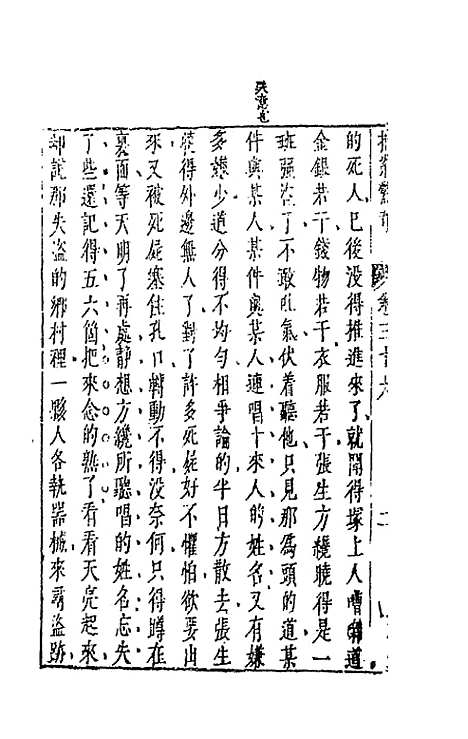 拍案驚奇　卷三十六　二
的死人已後没得推進來了就聞得塚上人嘈雜道
金銀若干錢物若干衣服若干張生方纔曉得是一
班强盗了不敢吐氣伏着聽他只見那為頭的道某
件與某人某件與某人連唱十來人的姓名又有嫌
多嫌少道分得不均勻相爭論的半日方散去張生
曉得外邊無人了對了許多死屍好不懼怕欲要出
來又被死屍塞住孔口轉動不得没奈何只得蹲在
裏面等天明了再處靜想方纔所聽唱的姓名忘失
了些還記得五六箇把來念的熟了看看天亮起來
却説那失盗的鄉村裡一夥人各執器械來尋盗跡